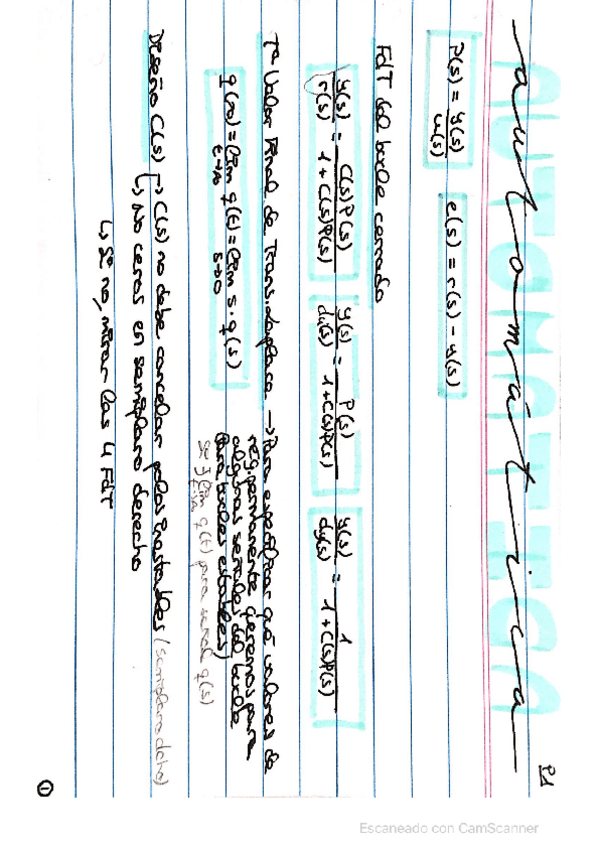 P1
automática
P(s) = y(s)/u(s)   e(s) = r(s) - y(s)
FdT del bucle cerrado
y(s)/r(s) = C(s)P(s)/1 + C(s)P(s)   y(s)/du(s) = P(s)/1 + C(s)P(s)   y(s)/dy(s) = 1/1 + C(s)P(s)
Tª Valor Final de Trans. Laplace → Para especificar qué valores de
reg. permanente queremos para
algunas señales del bucle
(para bucles estables)
q(∞) = lim t→∞ q(t) = lim s→0 s · q(s)
si ∃ lim q(t) para señal q(s)
Diseño C(s) ↱ C(s) no debe cancelar polos inestables (semiplano dcho)
↳ No ceros en semiplano derecho
↳ Si no, mirar las 4 FdT
1
Escaneado con CamScanner